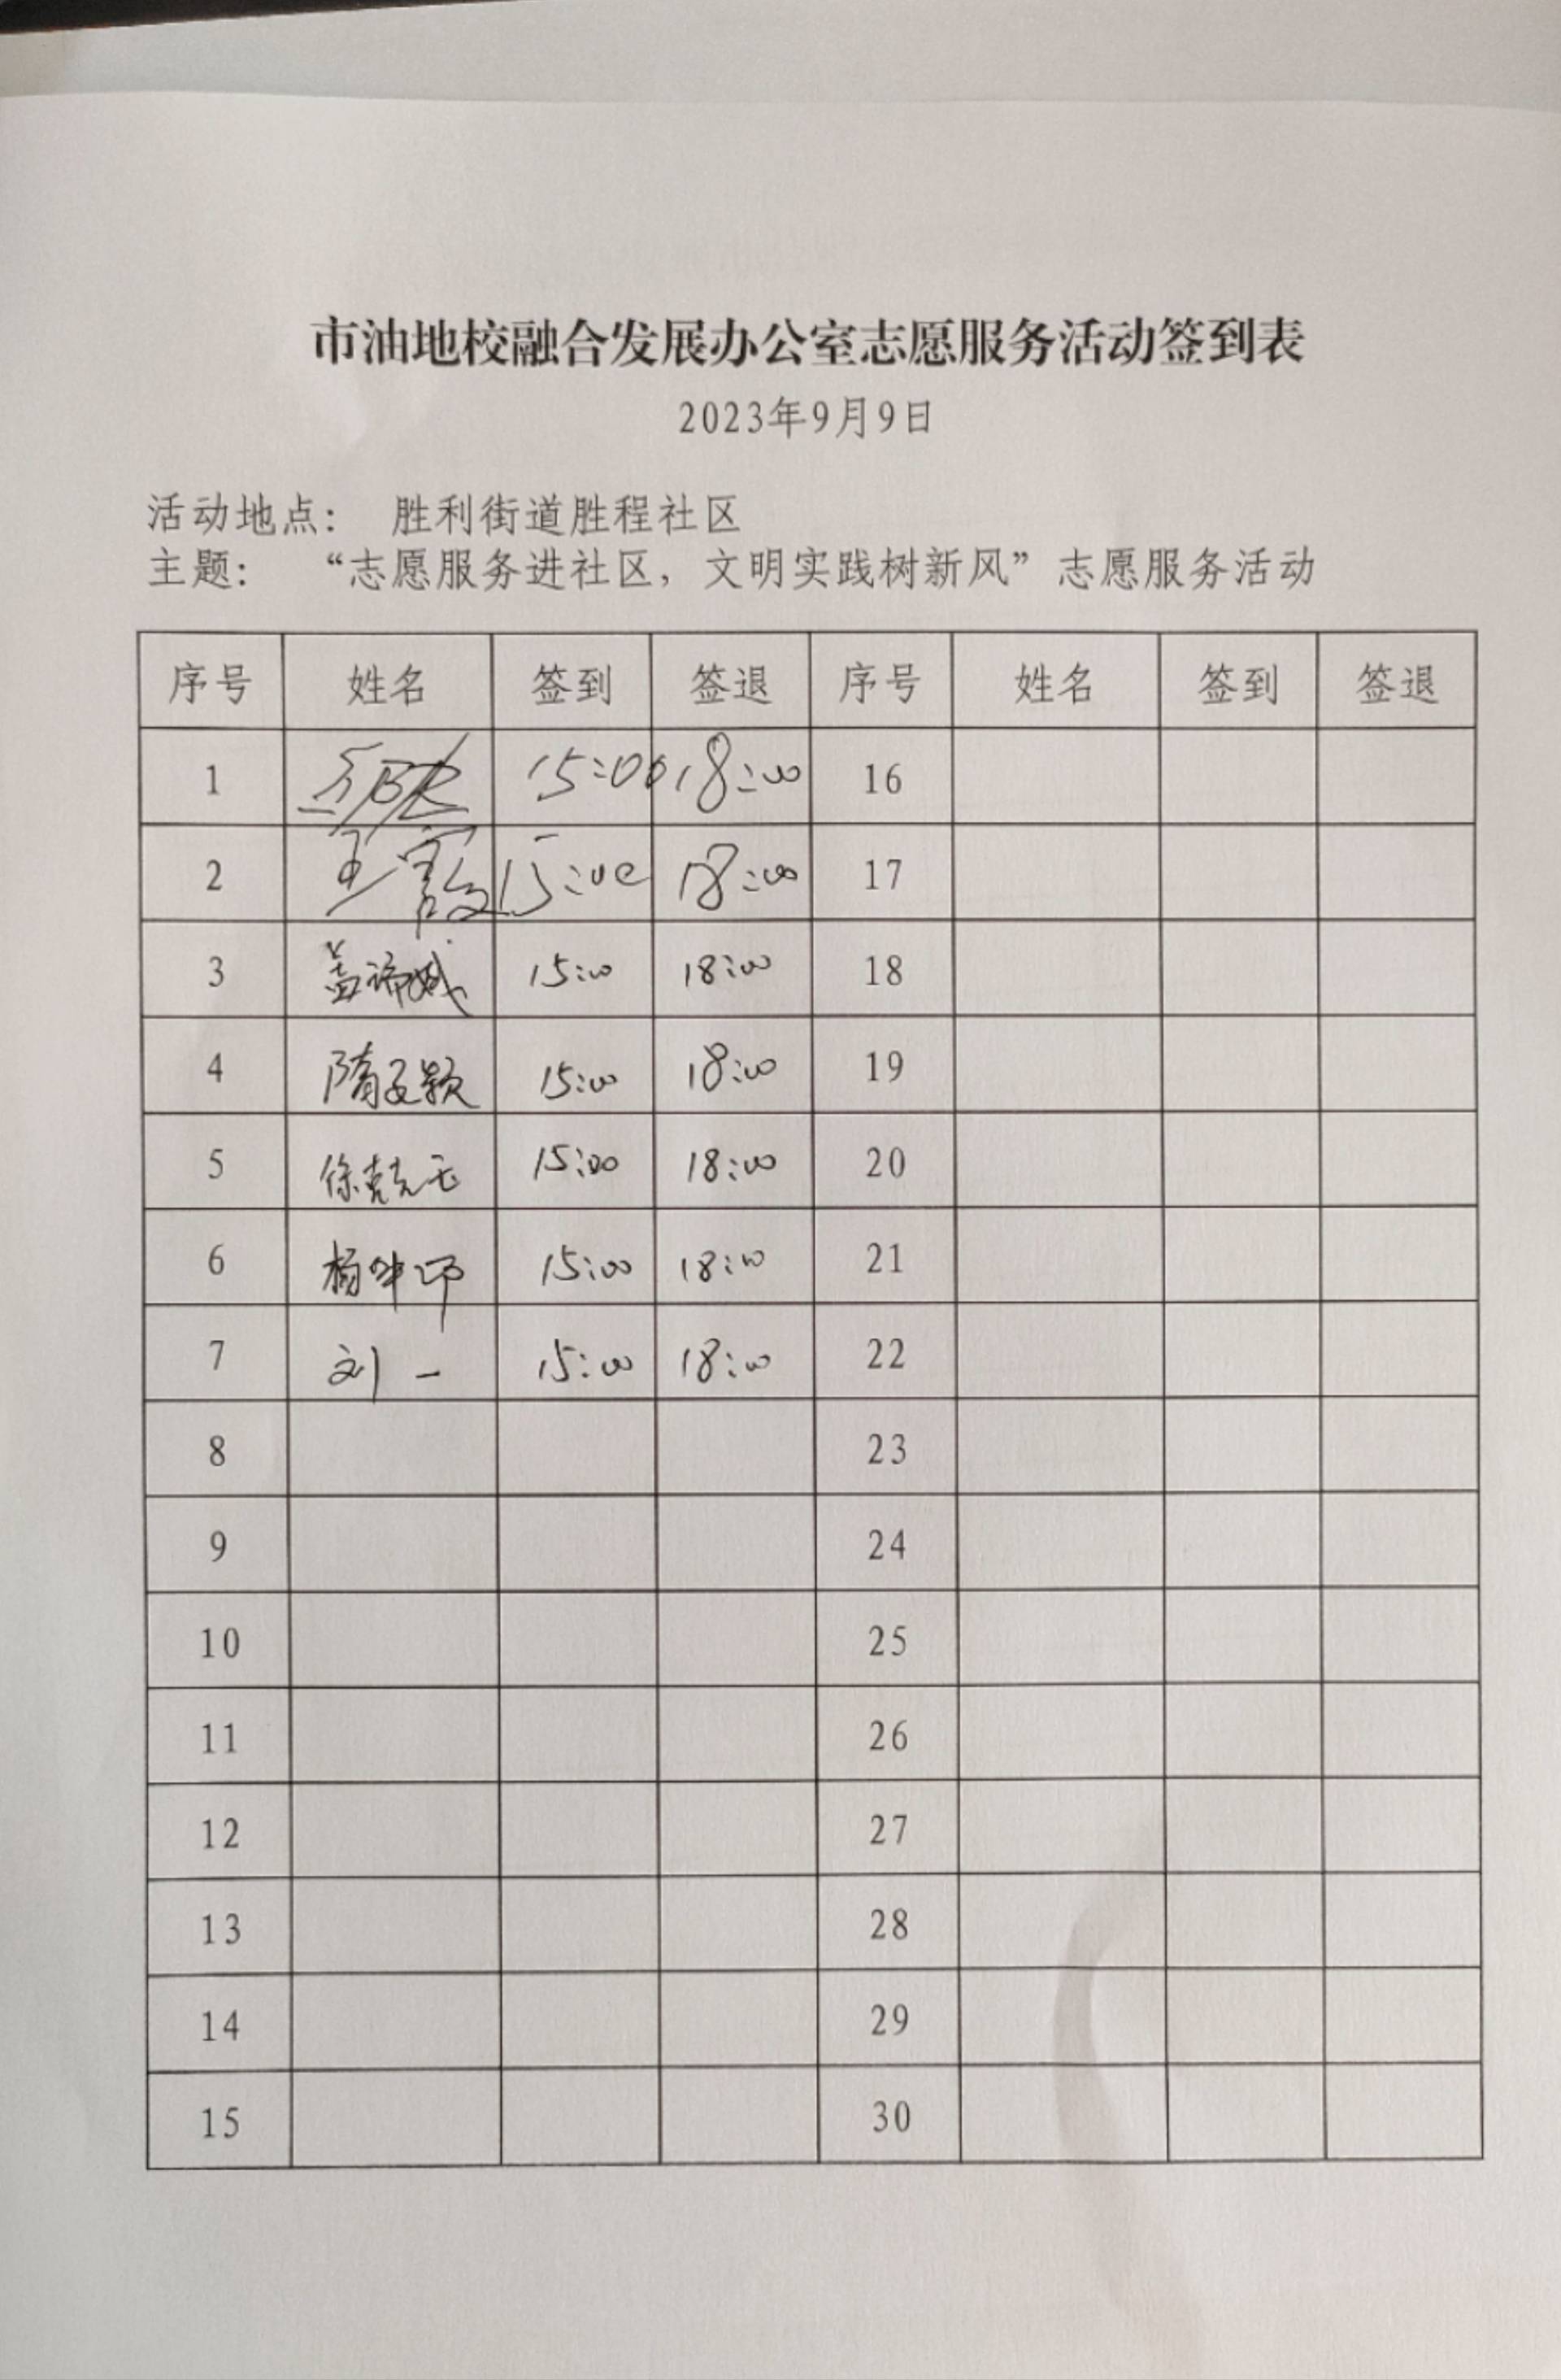 市油地校融合发展办公室志愿服务活动签到表
2023年9月9日
活动地点： 胜利街道胜程社区
主题： “志愿服务进社区，文明实践树新风”志愿服务活动
序号 姓名 签到 签退 序号 姓名 签到 签退
1 15:00 18:00 16
2 王 15:00 18:00 17
3 盖 15:00 18:00 18
4 隋 颖 15:00 18:00 19
5 徐 15:00 18:00 20
6 杨 15:00 18:00 21
7 刘一 15:00 18:00 22
8 23
9 24
10 25
11 26
12 27
13 28
14 29
15 30